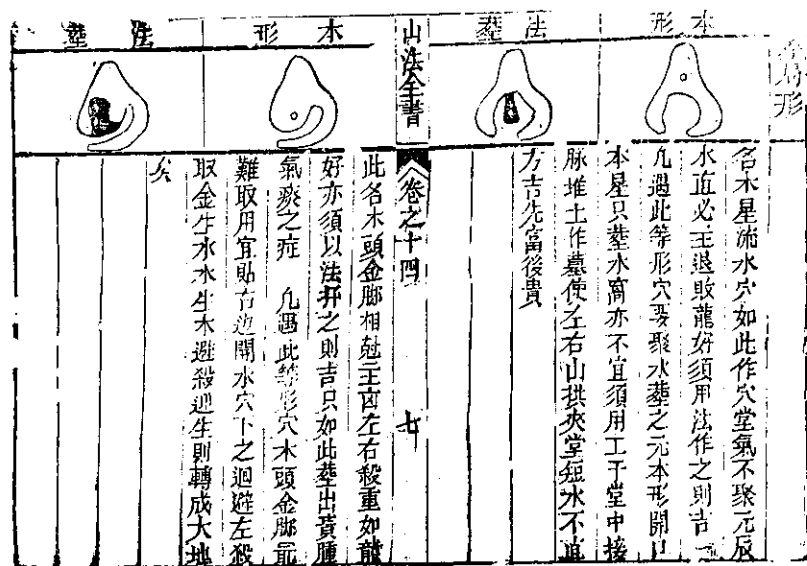 形
本形
法葬
名木星流水穴如此作穴堂氣不聚元辰
水直必主退敗龍好須用法作之則吉
凡遇此等形穴要聚水葬之元本形開口
本星只葬水窩亦不宜須用工于堂中接
脉堆土作墓使左右山拱夾堂短水不直
方吉先富後貴
山法全書
卷之十四
七
木形
法葬
此名木頭金脚相尅主凶左右殺重如龍
好亦須以法扞之則吉只如此葬出黃腫
氣痰之症 凡遇此等形穴木頭金脚最
難取用宜貼右邊開水穴下之迴避左殺
取金生水水生木避殺迎生則轉成大地
矣